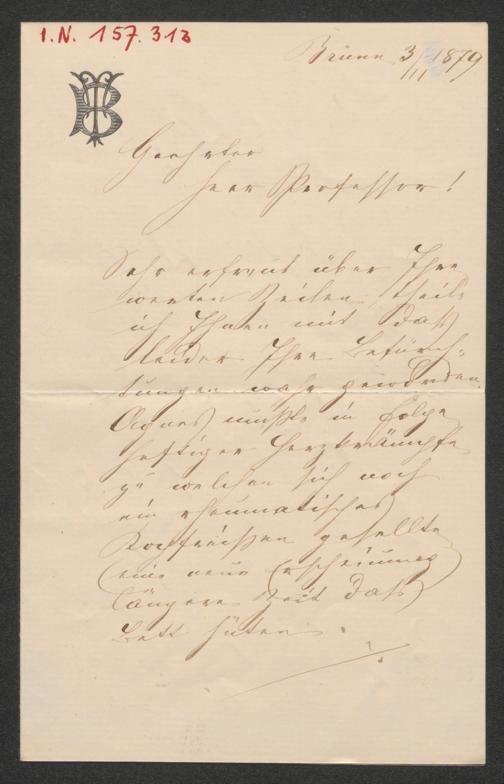 I.N. 157.313
Brünn 3/II 1879
BT
Geehrter
Herr Professor!
Sehr erfreut über Ihre
werten Zeilen, theile
ich Ihnen mit daß
leider Ihre Befürch=
tungen wahr geworden.
Agnes mußte in Folge
heftiger Herzkrämpfe
zu welchen sich noch
ein rheumatisches
Kopfreißen gesellte
(eine neue Erscheinung)
längere Zeit das
Bett hüten.